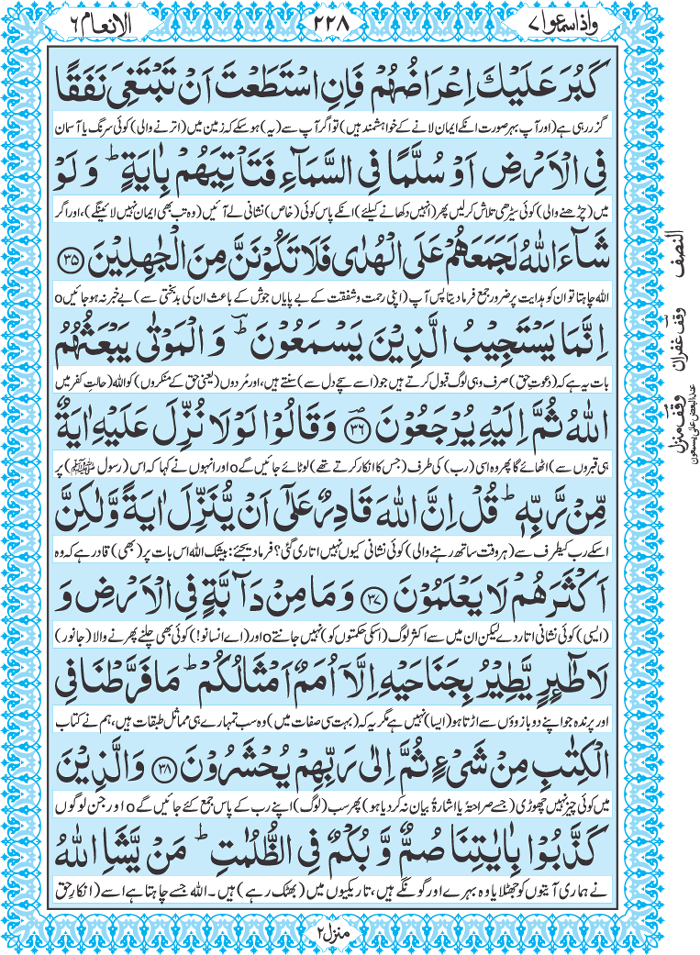 واذاسمعوا ٧
٢٢٨
الانعام ٦
كَبُرَ عَلَيْكَ اِعْرَاضُهُمْ فَاِنِ اسْتَطَعْتَ اَنْ تَبْتَغِىَ نَفَقًا
گزر رہی ہے (اور آپ بہر صورت انکے ایمان لانے کے خواہشمند ہیں) تو اگر آپ سے (یہ) ہوسکے کہ زمین میں (اترنے والی) کوئی سرنگ یا آسمان
فِى الْاَرْضِ اَوْ سُلَّمًا فِى السَّمَآءِ فَتَاْتِيَهُمْ بِاٰيَةٍ ؕ وَ لَوْ
میں (چڑھنے والی) کوئی سیڑھی تلاش کرلیں پھر (انہیں دکھانے کیلئے) انکے پاس کوئی (خاص) نشانی لے آئیں (وہ تب بھی ایمان نہیں لائینگے)، اور اگر
شَآءَ اللّٰهُ لَجَمَعَهُمْ عَلَى الْهُدٰى فَلَا تَكُوْنَنَّ مِنَ الْجٰهِلِيْنَ ﴿٣٥﴾
اللہ چاہتا تو ان کو ہدایت پر ضرور جمع فرما دیتا پس آپ (اپنی رحمت و شفقت کے بے پایاں جوش کے باعث ان کی بدبختی سے) بے خبر نہ ہو جائیں o
اِنَّمَا يَسْتَجِيْبُ الَّذِيْنَ يَسْمَعُوْنَ ؔؕ وَ الْمَوْتٰى يَبْعَثُهُمُ
بات یہ ہے کہ (دعوتِ حق) صرف وہی لوگ قبول کرتے ہیں جو (اسے سچے دل سے) سنتے ہیں، اور مُردوں (یعنی حق کے منکروں) کو اللہ (حالتِ کفر میں
اللّٰهُ ثُمَّ اِلَيْهِ يُرْجَعُوْنَ ﴿٣٦﴾ؔ وَقَالُوْا لَوْلَا نُزِّلَ عَلَيْهِ اٰيَةٌ
ہی قبروں سے) اٹھائے گا پھر وہ اسی (رب) کی طرف (جس کا انکار کرتے تھے) لوٹائے جائیں گے o اور انہوں نے کہا کہ اس (رسول ﷺ) پر
مِّنْ رَّبِّهٖ ؕ قُلْ اِنَّ اللّٰهَ قَادِرٌ عَلٰۤى اَنْ يُّنَزِّلَ اٰيَةً وَّلٰكِنَّ
اسکے رب کیطرف سے (ہر وقت ساتھ رہنے والی) کوئی نشانی کیوں نہیں اتاری گئی؟ فرما دیجئے: بیشک اللہ اس بات پر (بھی) قادر ہے کہ وہ
اَكْثَرَهُمْ لَا يَعْلَمُوْنَ ﴿٣٧﴾ وَ مَا مِنْ دَآبَّةٍ فِى الْاَرْضِ وَ
(ایسی) کوئی نشانی اتار دے لیکن ان میں سے اکثر لوگ (اسکی حکمتوں کو) نہیں جانتے o اور (اے انسانو!) کوئی بھی چلنے پھرنے والا (جانور)
لَا طٰٓئِرٍ يَّطِيْرُ بِجَنَاحَيْهِ اِلَّاۤ اُمَمٌ اَمْثَالُكُمْ ؕ مَا فَرَّطْنَا فِى
اور پرندہ جو اپنے دو بازوؤں سے اڑتا ہو (ایسا) نہیں ہے مگر یہ کہ (بہت سی صفات میں) وہ سب تمہارے ہی مماثل طبقات ہیں، ہم نے کتاب
الْكِتٰبِ مِنْ شَىْءٍ ثُمَّ اِلٰى رَبِّهِمْ يُحْشَرُوْنَ ﴿٣٨﴾ وَالَّذِيْنَ
میں کوئی چیز نہیں چھوڑی (جسے صراحۃً یا اشارۃً بیان نہ کر دیا ہو) پھر سب (لوگ) اپنے رب کے پاس جمع کئے جائیں گے o اور جن لوگوں
كَذَّبُوْا بِاٰيٰتِنَا صُمٌّ وَّ بُكْمٌ فِى الظُّلُمٰتِ ؕ مَنْ يَّشَاِ اللّٰهُ
نے ہماری آیتوں کو جھٹلایا وہ بہرے اور گونگے ہیں، تاریکیوں میں (بھٹک رہے) ہیں۔ اللہ جسے چاہتا ہے اسے (انکارِ حق
النصف
وقف غفران
وقف منزل
منزل ٢